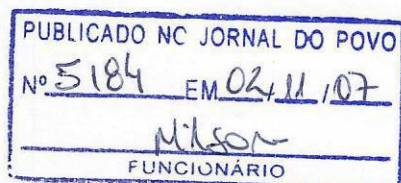 PUBLICADO NO JORNAL DO POVO
Nº 5184 EM 02/11/07
Milson
FUNCIONÁRIO